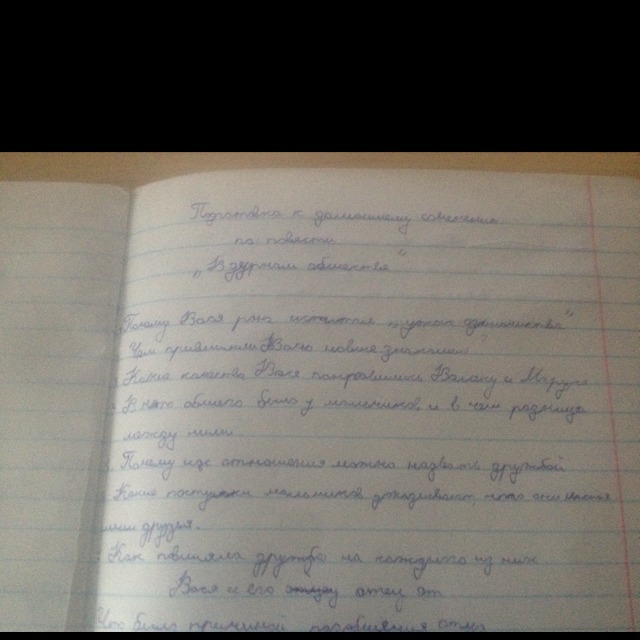 Подготовка к домашнему сочинению
по повести
„В дурном обществе“
Почему Вася рано испытал „ужас одиночества“
Чем привлекли Васю новые знакомые?
Какие качества Васи понравились Валеку и Марусе
общего было у мальчиков, и в чем разница
между ними
Почему их отношения можно назвать дружбой
Какие поступки мальчиков доказывают, что они
друзья.
Как повлияла дружба на каждого из них
Вася и его отец от
Что было причиной разобщения отца